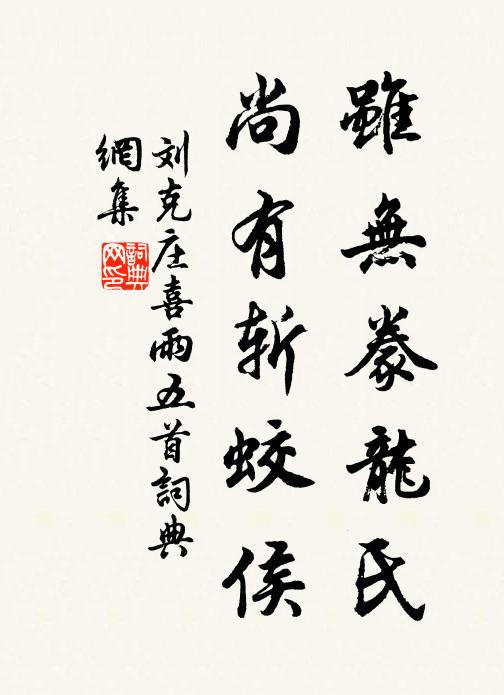 雖無豢龍氏
尚有斬蛟侯
刘克庄喜雨五首詞典
網集
詞典
网印